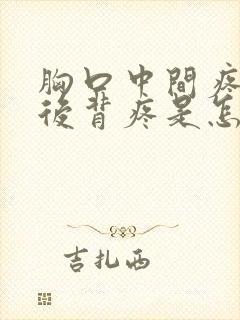 胸口中間疼
後背疼是怎
吉扎西